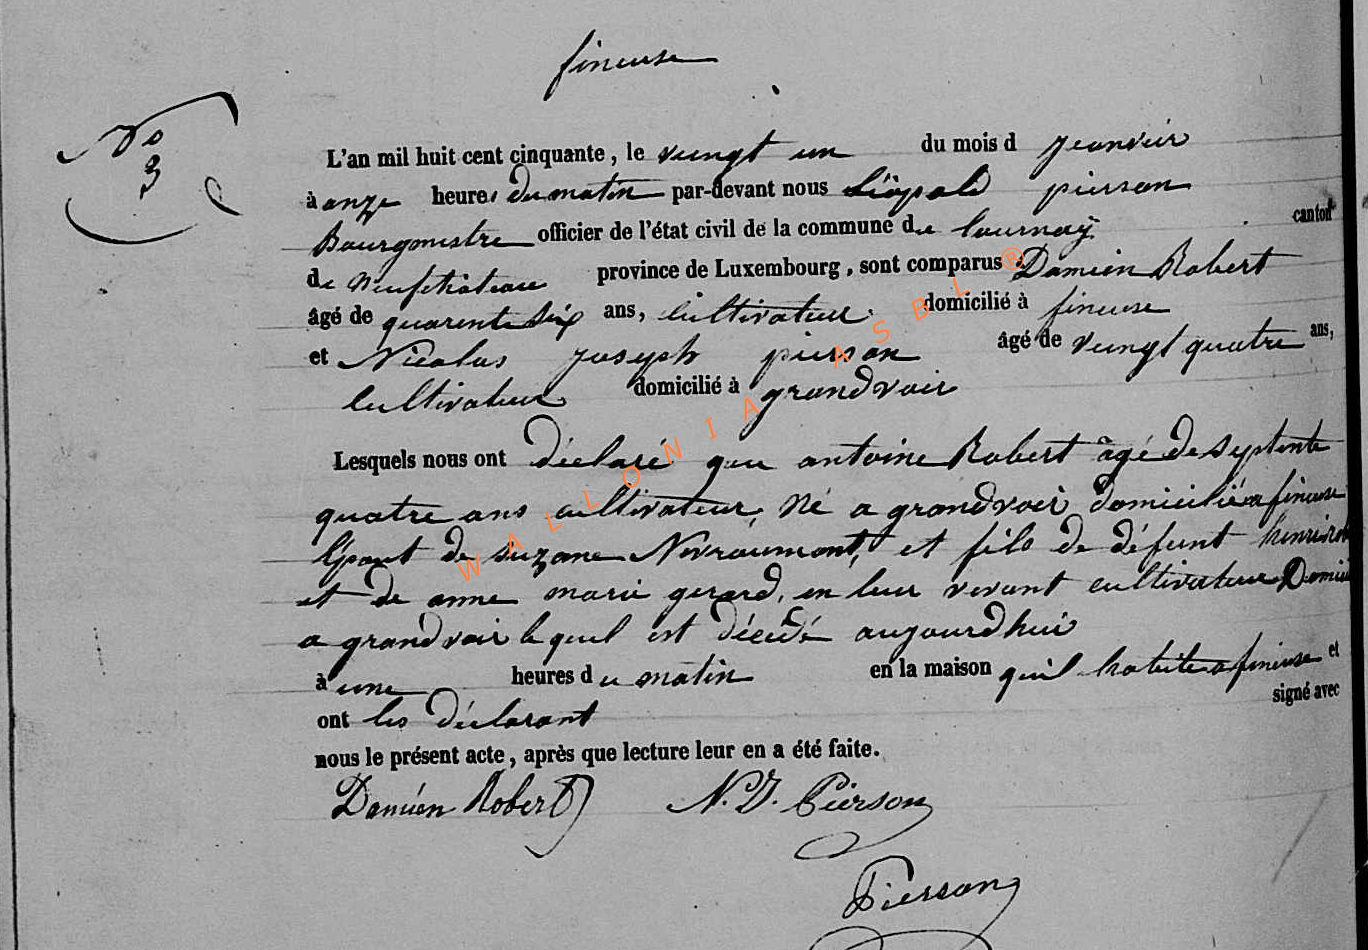 fineuse
No
3
L'an mil huit cent cinquante, le vuingt un du mois d jeanvier
à onze heures du matin par-devant nous Léopold pierson
Bourgmestre officier de l'état civil de la commune de tournay canton
de Neufchateau province de Luxembourg, sont comparus Damien Robert
âgé de quarente six ans, cultivateur domicilié à fineuse
et Nicolas joseph pierson âgé de vuingt quatre ans,
cultivateur domicilié à grandvoir
Lesquels nous ont déclaré que antoine Robert âgé de septente
quatre ans cultivateur, né a grandvoir domicilié a fineuse
Epout de suzane Nevraumont, et fils de défunt henri
et de anne marie gerard, en leur vivant cultivateur Domi
a grandvoir le quel est décédé aujourdhui
à une heures du matin en la maison quil habite a fineuse et
ont les déclarant signé avec
nous le présent acte, après que lecture leur en a été faite.
Damien Robert N. J. Pierson
Pierson
WALLONIA ASBL ®